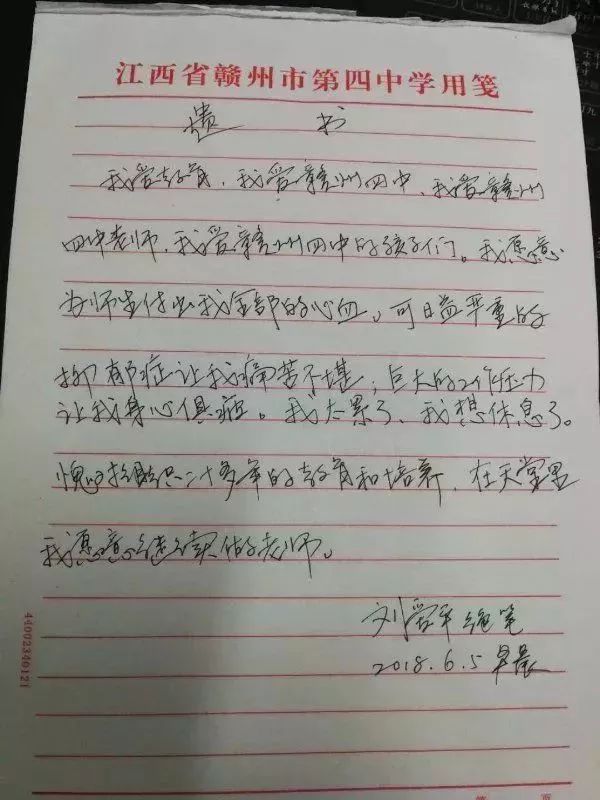 江西省赣州市第四中学用笺
遗 书
我爱教育，我爱赣州四中，我爱赣州
四中老师，我爱赣州四中的孩子们。我愿意
为师生付出我全部的心血，可日益严重的
抑郁症让我痛苦不堪；巨大的工作压力
让我身心俱疲。我太累了，我想休息了。
愧对组织二十多年的教育和培养，在天堂里
我愿意继续做老师。
刘爱平绝笔
2018.6.5 早晨
44002340121
第 页